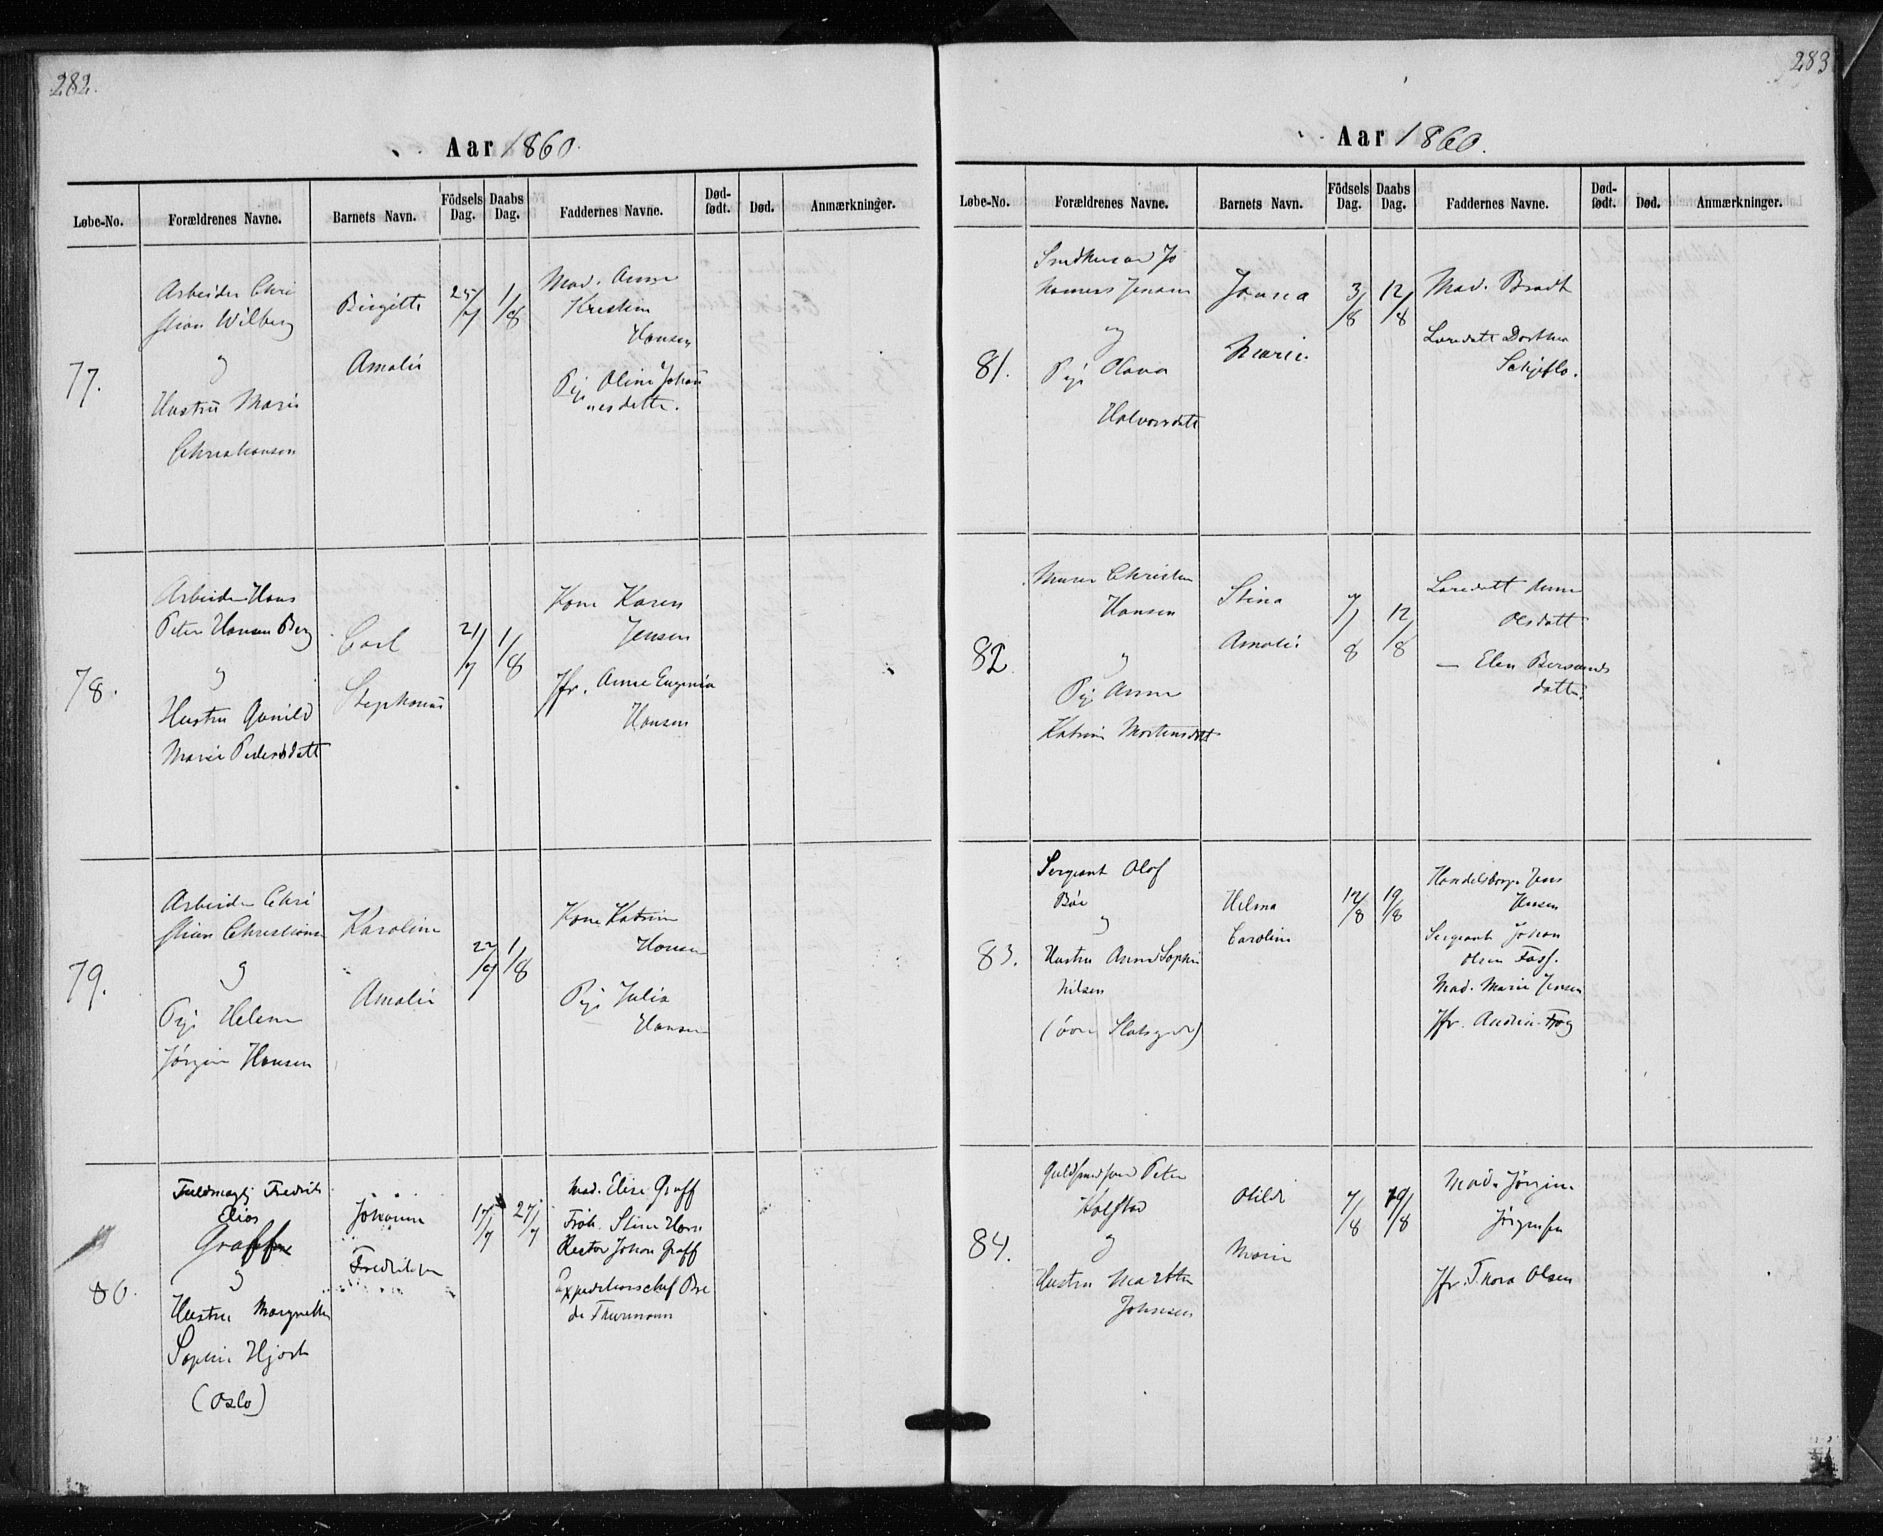 282.
Aar 1860.
Løbe-No. Forældrenes Navne. Barnets Navn. Födsels Dag. Daabs Dag. Faddernes Navne. Død-født. Død. Anmærkninger.
77.
Arbeider Chri
stian Wilberg
og
Hustru Marie
Christiansen
Birgitte
Amalie
25/7
1/8
Mad. Anne
Kristine
Hansen
Pige Oline Johan
nesdatter.
78.
Arbeider Hans
Peter Hansen Berg
og
Hustru Gunild
Marie Pedersdatt
Carl
Stephanus
21/7
1/8
Kone Karen
Jensen
Jfr. Anne Eugenia
Hansen
79.
Arbeider Chri
stian Christians
og
Pige Helene
Jørgine Hansen
Karoline
Amalie
22/7
1/8
Kone Katrine
Hansen
Pige Julia
Hansen
80.
Fuldmægtig Fredrik
Elias
Graff
og
Hustru Margrethe
Sophie Hjort
(Oslo)
Johanne
Fredrikke
17/7
27/7
Mad. Elise Graff
Frøk. Stine Horn
Rector Johan Graff
Expeditionschef Bre
de Thurmann
283
Aar 1860.
Løbe-No. Forældrenes Navne. Barnets Navn. Födsels Dag. Daabs Dag. Faddernes Navne. Død-født. Død. Anmærkninger.
81.
Smedkusvend Jo
hannes Jensen
og
Pige Olava
Halvorsdatt
Jensea
Marie.
3/8
12/8
Mad. Bradt
Løsedatt Dorthea
Schjeflo.
82
Murer Christian
Hansen
og
Pige Anne
Katrine Mortensdatt
Stina
Amalie
7/8
12/8
Løsedatt Anne
Olsdatt
— Elen Bersvends
datter
83.
Sergeant Olof
Böe
og
Hustru Anne Sophie
Nilsen
(øvre Slotsgade)
Helma
Caroline
12/8
19/8
Handelsborger Jens
Jensen
Sergeant Johan
Olsen Foss.
Mad. Marie Jensen
Jfr. Andrine Fog
84.
Guldsmedsvend Peter
Holstad
og
Hustru Marthe
Johnsen
Otilde
Marie
7/8
19/8
Mad. Jørgine
Jørgensen
Jfr. Thora Olsen